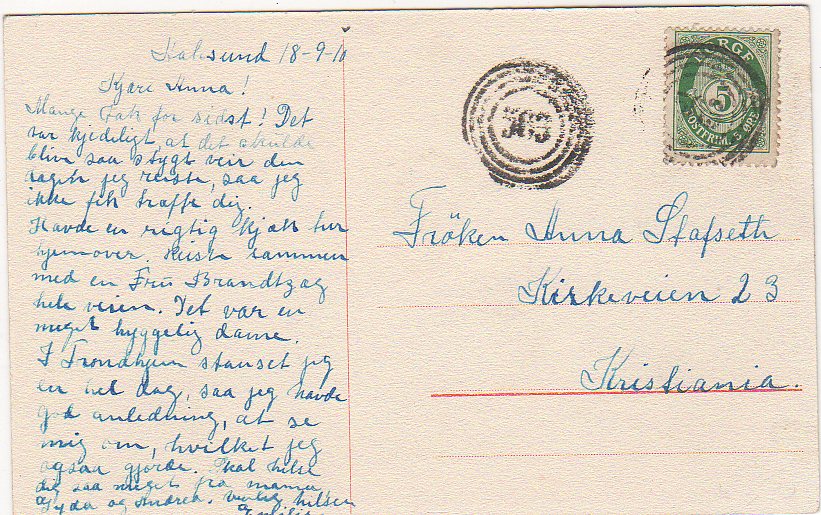 18-9-10
Kjære Anna!
Mange Tak for sidst! Det
var kjedeligt, at det skulde
blive saa stygt veir den
dagen jeg reiste, saa jeg
ikke fik træffe dig.
Havde en rigtig kjæk tur
hjemover. Reiste sammen
med en Frü Brandtzæg
hele veien. Det var en
meget hyggelig dame.
I Trondhjem stanset jeg
en hel dag, saa jeg havde
god anledning, at se
mig om, hvilket jeg
ogsaa gjorde. Skal hilse
dig saa meget fra mama
og Lyda og Andrea. Venlig hilsen
363
NORGE
5
POSTFRIM. 5 ØRE
Fröken Anna Stafseth
Kirkeveien 23
Kristiania.